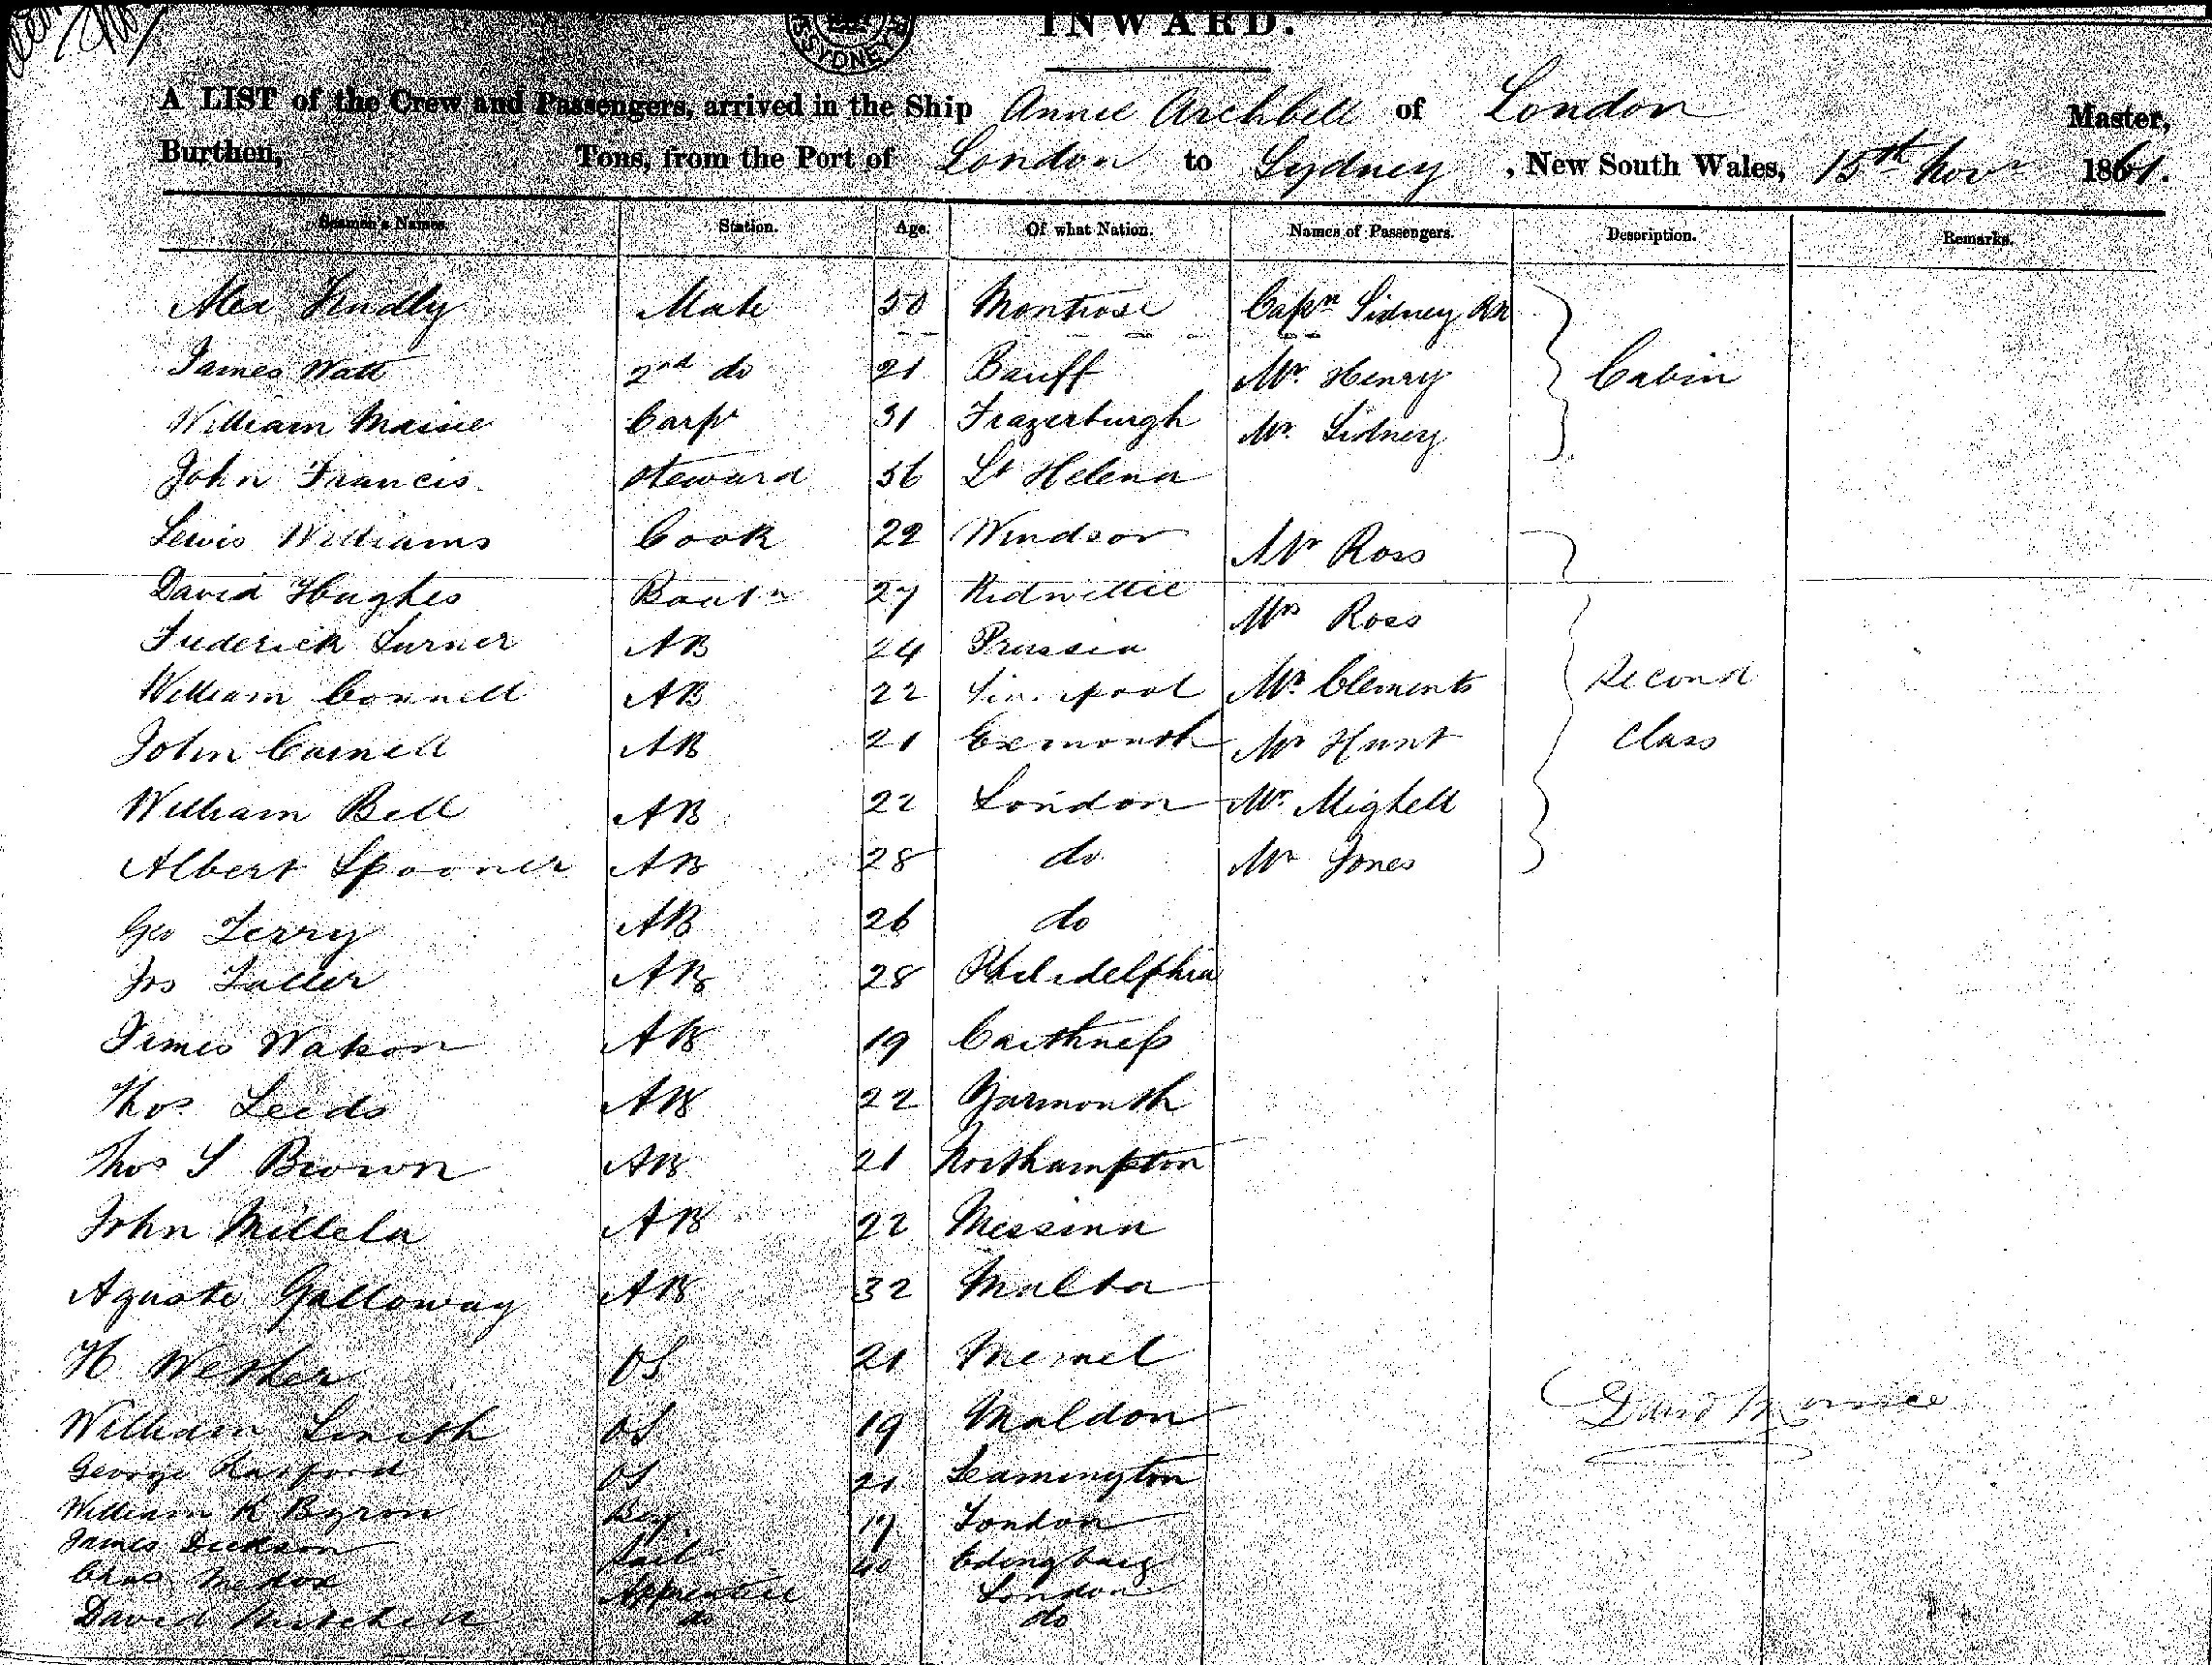 INWARD.
SYDNEY
A LIST of the Crew and Passengers, arrived in the Ship Annie Archbell of London Master,
Burthen, Tons, from the Port of London to Sydney, New South Wales, 15th Novr 1861.
Seamen's Names. Station. Age. Of what Nation. Names of Passengers. Description. Remarks.
Alex Mate 30 Montrose Capn Sidney RN
James Watt 2nd do 21 Banff Mr. Henry Cabin
William Maine Carpr 31 Frazerburgh Mr. Sidney
John Francis Steward 36 St Helena
Lewis Williams Cook 22 Windsor Mr Ross
David Hughes 27 Mrs Ross
Frederick Turner AB 24 Prussia
William Connell AB 22 Liverpool Mr. Clements Second
John AB 21 Exmouth Mr Hunt Class
William Bell AB 22 London Mr. Mighell
Albert Spooner AB 28 do Mr Jones
Geo Terry AB 26 do
Jos AB 28 Philidelphia
James Watson AB 19 Caithness
Thos Leeds AB 22 Yarmouth
Thos S Brown AB 21 Northampton
John Millela AB 22 Messina
Aguste Galloway AB 32 Malta
H Wesher OS 21 Memel
William Smith OS 19 Maldon
George OS 21 Leamington
William K Byron Boy 17 London
James Dickson 40
Chas London
David Mitchell do do
David